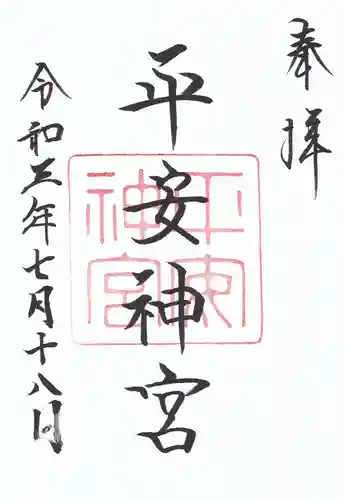 奉拝
平安神宮
平安神宮
令和三年七月十八日